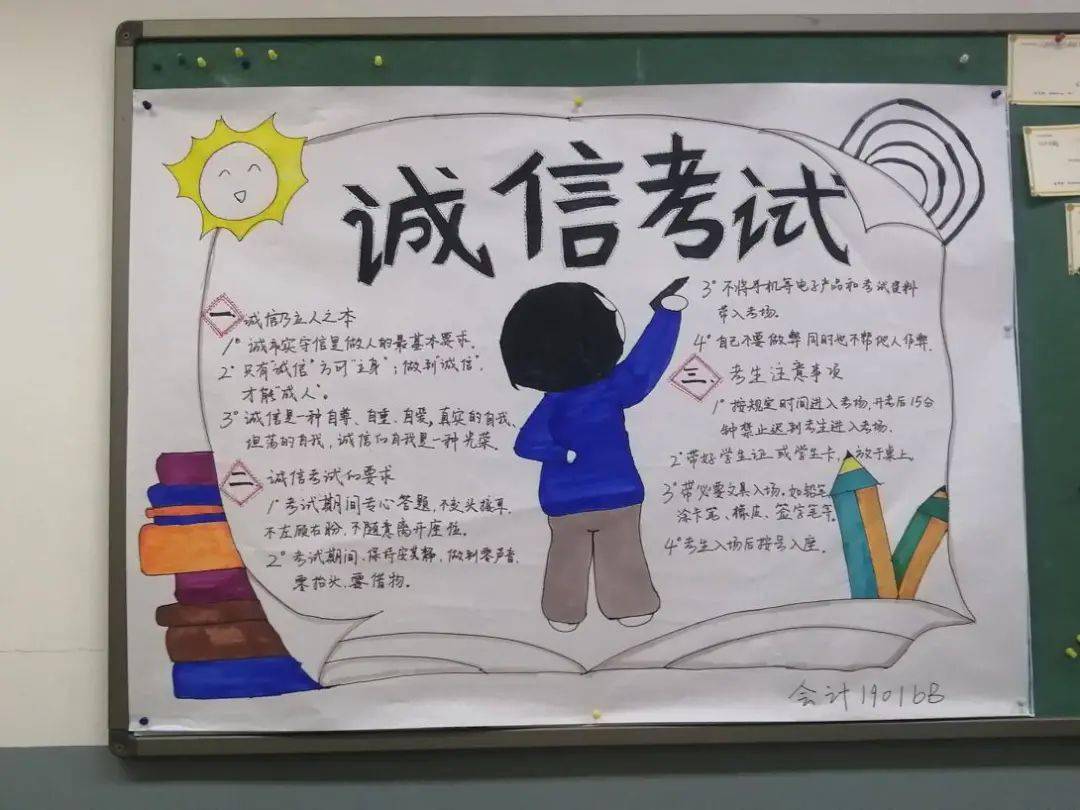 诚信考试
一 诚信乃立人之本
1° 诚实守信是做人的最基本要求。
2° 只有"诚信"方可"立身";做到"诚信",
才能"成人"。
3° 诚信是一种自尊、自重、自爱,真实的自我、
坦荡的自我,诚信的自我是一种光荣。
二 诚信考试的要求
1° 考试期间专心答题,不交头接耳、
不左顾右盼,不随意离开座位。
2° 考试期间、保持安静,做到零声音、
零抬头、零借物。
3° 不将手机等电子产品和考试资料
带入考场。
4° 自己不要做弊同时也不帮他人作弊.
三、考生注意事项
1° 按规定时间进入考场,开考后15分
钟禁止迟到考生进入考场.
2° 带好学生证或学生卡,放于桌上。
3° 带必要文具入场。如铅笔、
涂卡笔、橡皮、签字笔等。
4° 考生入场后按号入座。
会计19016B